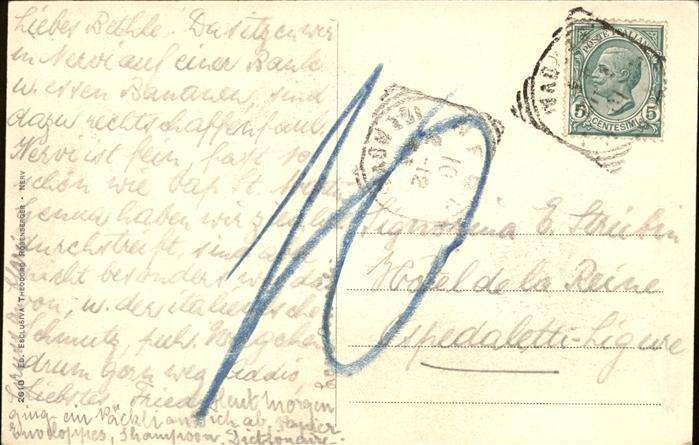 Liebes Bethle! Da sitzen wir
in Nervi auf einer Bank
u. essen Bananen, sind
dazu rechtschaffen
Nervi ist fein, fast so
schön wie Cap St.
Genua haben wir
durchstreift, sind
nicht besonders
von, u. der italienische
Schmutz
drum gern weg. Addio
Liebstes Friedel
ging ein Päckli an Dich ab, Papier
Enveloppes, Shampoon, Dictionaire.
2610 Ed. Esclusiva Theodoro Rosenberger - Nervi
10
POSTE ITALIANE
5 5
CENTESIMI
Signorina E. Strübin
Hôtel de la Reine
Ospedaletti-Ligure